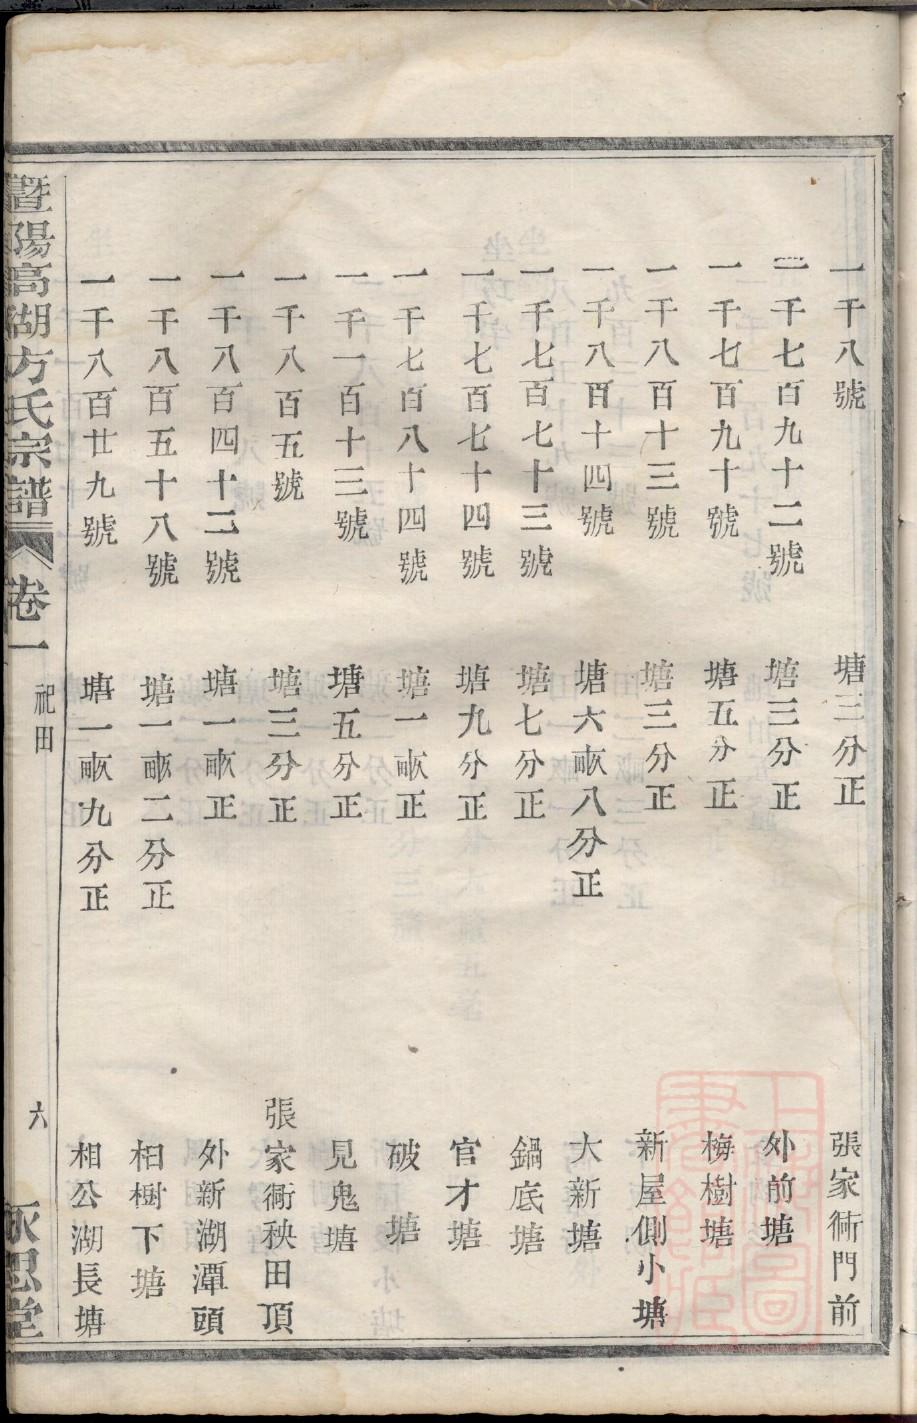 一千八號　塘三分正　張家衕門前
一千七百九十二號　塘三分正　外前塘
一千七百九十號　塘五分正　梅樹塘
一千八百十三號　塘三分正　新屋側小塘
一千八百十四號　塘六畝八分正　大新塘
一千七百七十三號　塘七分正　鍋底塘
一千七百七十四號　塘九分正　官才塘
一千七百八十四號　塘一畝正　破塘
一千一百十三號　塘五分正　見鬼塘
一千八百五號　塘三分正　張家衕秧田頂
一千八百四十二號　塘一畝正　外新湖潭頭
一千八百五十八號　塘一畝二分正　柏樹下塘
一千八百廿九號　塘一畝九分正　相公湖長塘
暨陽高湖方氏宗譜　卷一　祀田　六　永思堂